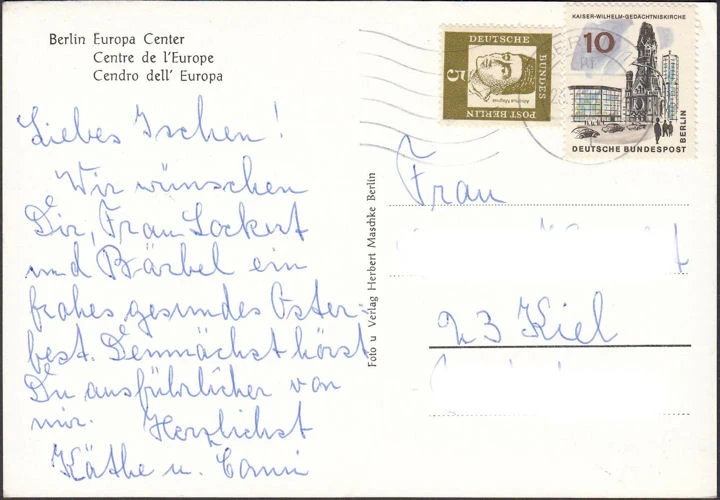 Berlin Europa Center
Centre de l'Europe
Cendro dell' Europa
Liebes Ischen!
Wir wünschen
Dir, Frau Lockert
und Bärbel ein
frohes gesundes Oster-
fest. Demnächst hörst
Du ausführlicher von
mir. Herzlichst
Käthe u.
Foto u Verlag Herbert Maschke Berlin
DEUTSCHE BUNDES
POST BERLIN
5
Albertus Magnus
KAISER-WILHELM-GEDÄCHTNISKIRCHE
10
BERLIN
DEUTSCHE BUNDESPOST
Frau
23 Kiel